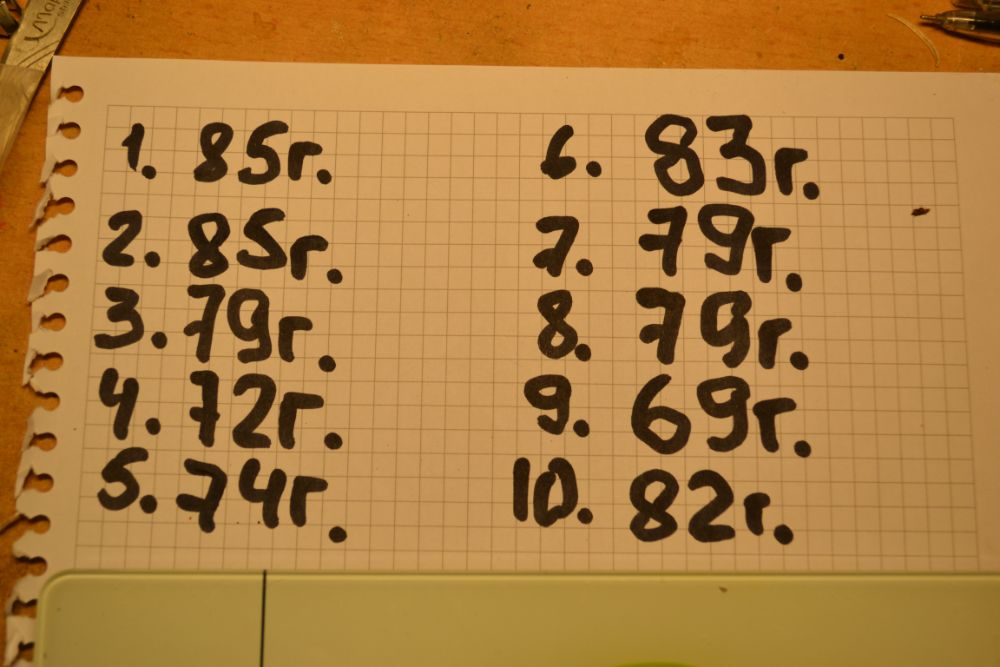 1. 85г.
2. 85г.
3. 79г.
4. 72г.
5. 74г.
6. 83г.
7. 79г.
8. 79г.
9. 69г.
10. 82г.